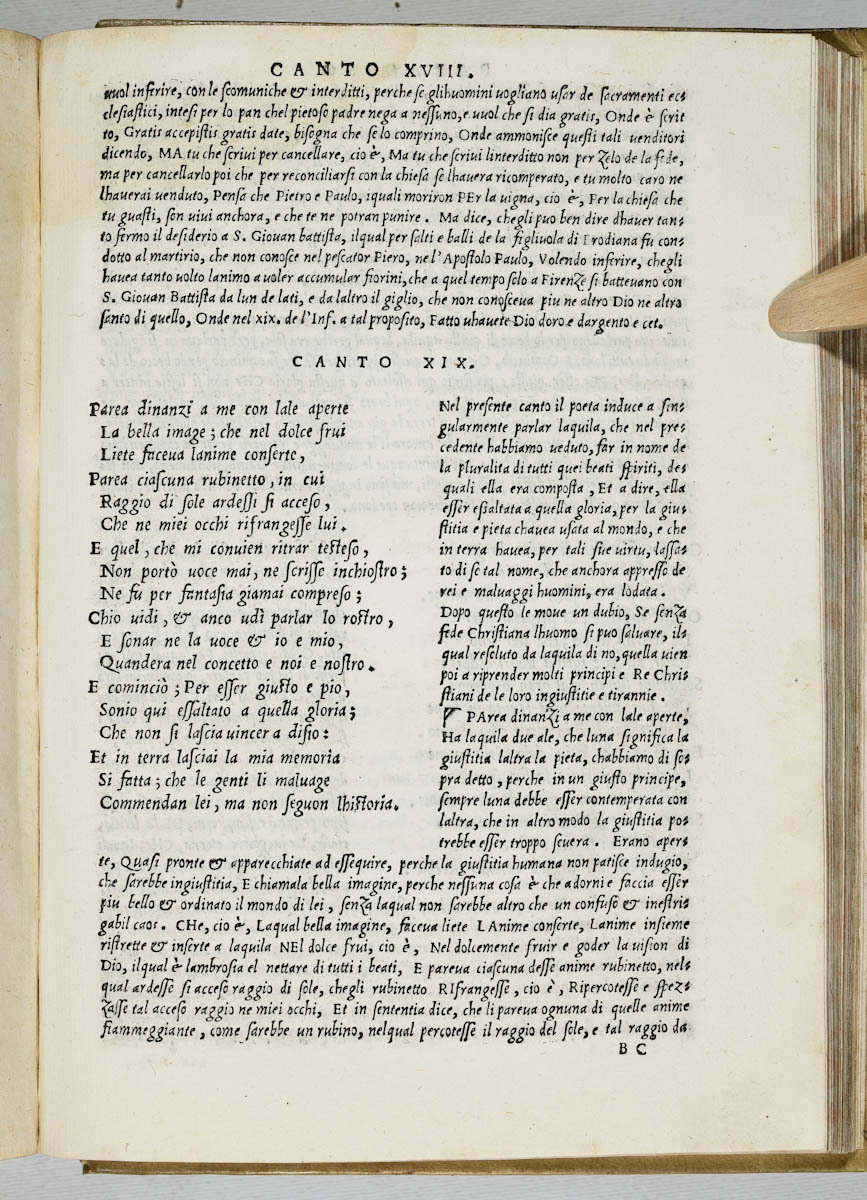 CANTO XVIII.
uuol inferire, con le scomuniche & interditti, perche se glihuomini uogliano usar de sacramenti ec=
clesiastici, intesi per lo pan chel pietoso padre nega a nessuno, e uuol che si dia gratis, Onde è scrit
to, Gratis accepistis gratis date, bisogna che se lo comprino, Onde ammonisce questi tali uenditori
dicendo, MA tu che scriui per cancellare, cio è, Ma tu che scriui linterditto non per zelo de la fede,
ma per cancellarlo poi che per reconciliarsi con la chiesa se lhauera ricomperato, e tu molto caro ne
lhauerai uenduto, Pensa che Pietro e Paulo, iquali moriron PEr la uigna, cio è, Per la chiesa che
tu guasti, son uiui anchora, e che te ne potran punire. Ma dice, chegli puo ben dire dhauer tan=
to fermo il desiderio a S. Giouan battista, ilqual per salti e balli de la figliuola di Erodiana fu con=
dotto al martirio, che non conosce nel pescator Piero, ne l'Apostolo Paulo, Volendo inferire, chegli
hauea tanto uolto lanimo a uoler accumular fiorini, che a quel tempo solo a Firenze si batteuano con
S. Giouan Battista da lun de lati, e da laltro il giglio, che non conosceua piu ne altro Dio ne altro
santo di quello, Onde nel xix. de l'Inf. a tal proposito, Fatto uhauete Dio doro e dargento e cet.
CANTO XIX.
Parea dinanzi a me con lale aperte
La bella image; che nel dolce frui
Liete faceua lanime conserte,
Parea ciascuna rubinetto, in cui
Raggio di sole ardessi si acceso,
Che ne miei occhi rifrangesse lui.
E quel, che mi conuien ritrar testeso,
Non portò uoce mai, ne scrisse inchiostro;
Ne fù per fantasia giamai compreso;
Chio uidi, & anco udì parlar lo rostro,
E sonar ne la uoce & io e mio,
Quandera nel concetto e noi e nostro.
E cominciò; Per esser giusto e pio,
Sonio qui essaltato a quella gloria;
Che non si lascia uincer a disio:
Et in terra lasciai la mia memoria
Si fatta; che le genti li maluage
Commendan lei, ma non seguon lhistoria.
Nel presente canto il poeta induce a sin=
gularmente parlar laquila, che nel pre=
cedente habbiamo ueduto, far in nome de
la pluralita di tutti quei beati spiriti, de=
quali ella era composta, Et a dire, ella
esser essaltata a quella gloria, per la giu=
stitia e pieta chauea usata al mondo, e che
in terra hauea, per tali sue uirtu, lassa=
to di se tal nome, che anchora appresso de
rei e maluaggi huomini, era lodata.
Dopo questo le moue un dubio, Se senza
fede Christiana lhuomo si puo saluare, il=
qual resoluto da laquila di no, quella uien
poi a riprender molti principi e Re Chri=
stiani de le loro ingiustitie e tirannie.
PArea dinanzi a me con lale aperte,
Ha laquila due ale, che luna significa la
giustitia laltra la pieta, chabbiamo di so=
pra detto, perche in un giusto principe,
sempre luna debbe esser contemperata con
laltra, che in altro modo la giustitia po=
trebbe esser troppo seuera. Erano aper=
te, Quasi pronte & apparecchiate ad essequire, perche la giustitia humana non patisce indugio,
che sarebbe ingiustitia, E chiamala bella imagine, perche nessuna cosa è che adorni e faccia esser
piu bello & ordinato il mondo di lei, senza laqual non sarebbe altro che un confuso & inestri=
gabil caos. CHe, cio è, Laqual bella imagine, faceua liete LAnime conserte, Lanime insieme
ristrette & inserte a laquila NEl dolce frui, cio è, Nel dolcemente fruir e goder la uision di
Dio, ilqual è lambrosia el nettare di tutti i beati, E pareua ciascuna desse anime rubinetto, nel=
qual ardesse si acceso raggio di sole, chegli rubinetto RIfrangesse, cio è, Ripercotesse e spez=
zasse tal acceso raggio ne miei occhi, Et in sententia dice, che li pareua ognuna di quelle anime
fiammeggiante, come sarebbe un rubino, nelqual percotesse il raggio del sole, e tal raggio da
B C